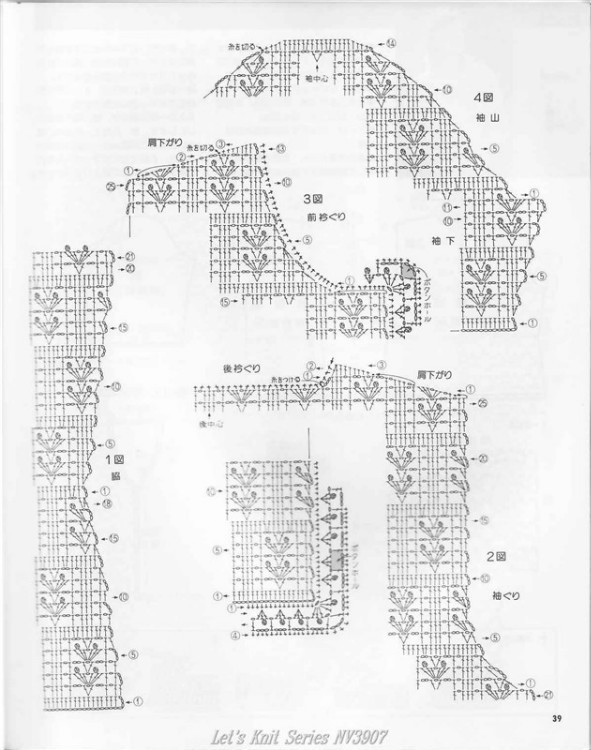 糸を切る
⑭
袖中心
⑩
4図
袖山
⑤
肩下がり
糸を切る
③
②
①
⑬
㉕
⑩
3図
前衿ぐり
⑤
①
⑮
ボタンホール
①
⑪
⑩
袖下
⑤
①
㉑
⑳
⑮
⑩
⑤
1図
脇
①
⑱
⑮
⑩
⑤
①
後衿ぐり
糸をつける
②
①
③
肩下がり
①
㉕
後中心
⑳
⑮
⑩
2図
袖ぐり
⑤
①
㉑
⑩
⑤
①
①
④
ボタンホール
39
Let's Knit Series NV3907